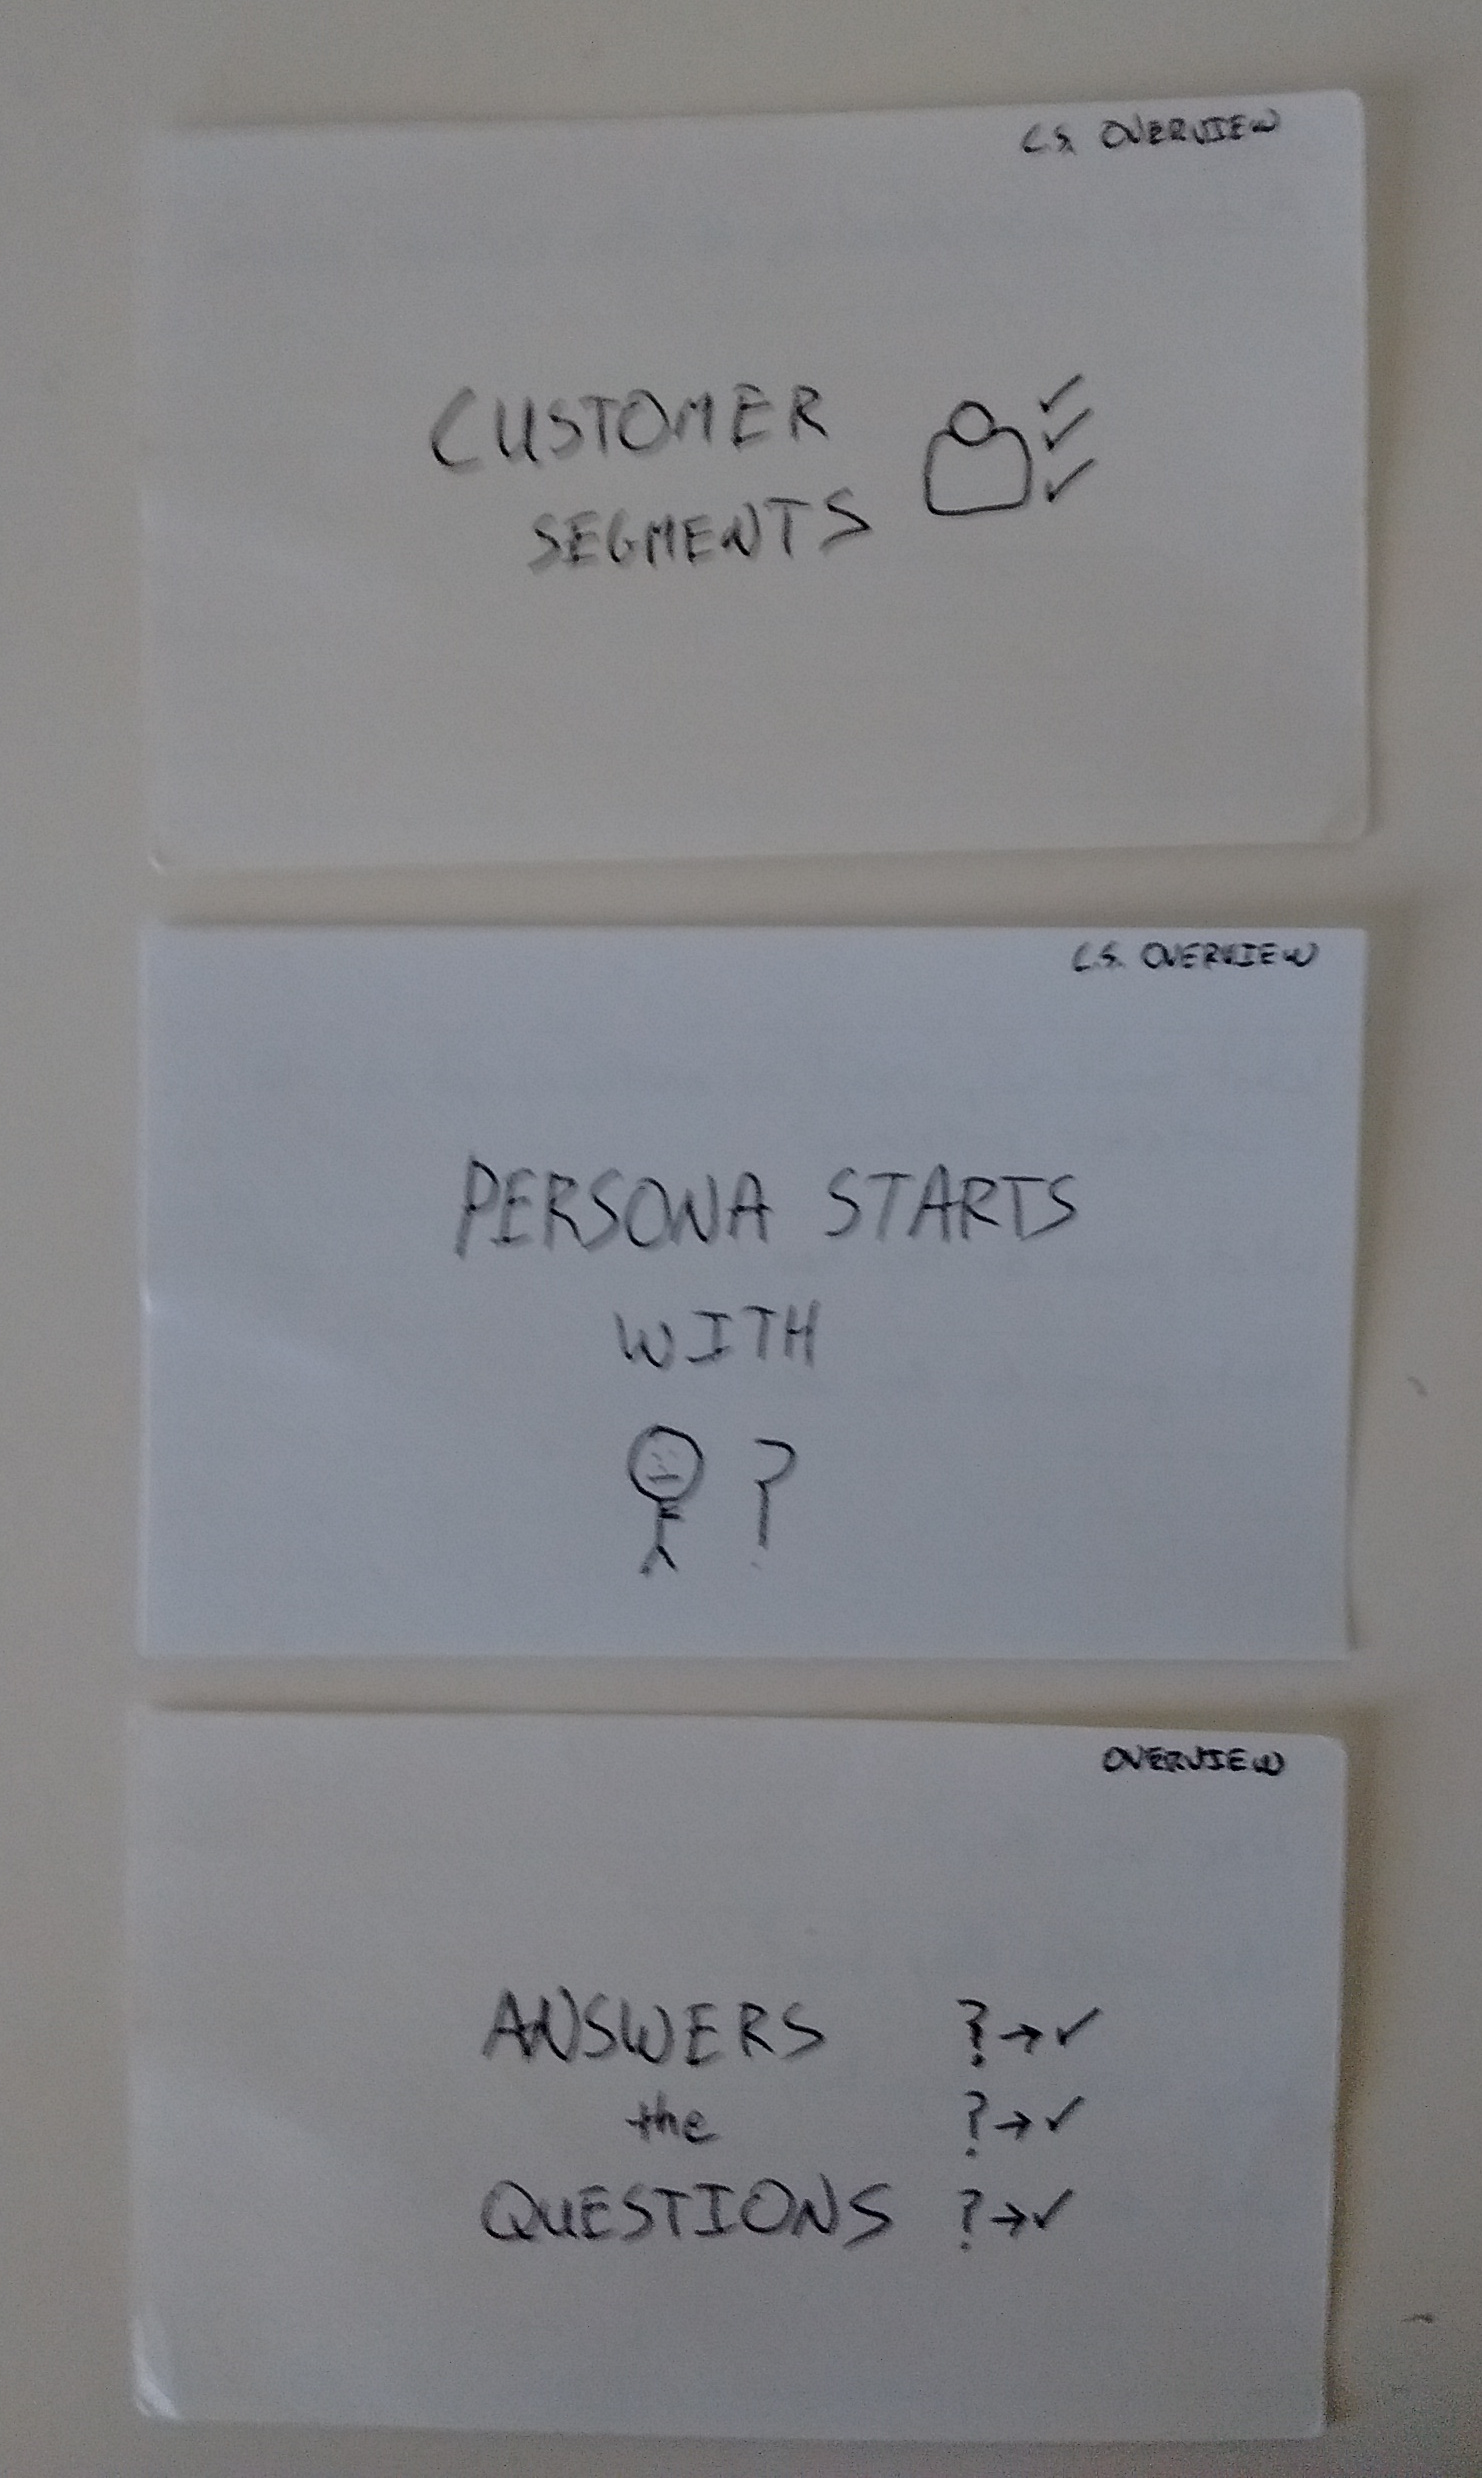 C.S. OVERVIEW
CUSTOMER
SEGMENTS
C.S. OVERVIEW
PERSONA STARTS
WITH
?
OVERVIEW
ANSWERS ?→✓
the ?→✓
QUESTIONS ?→✓